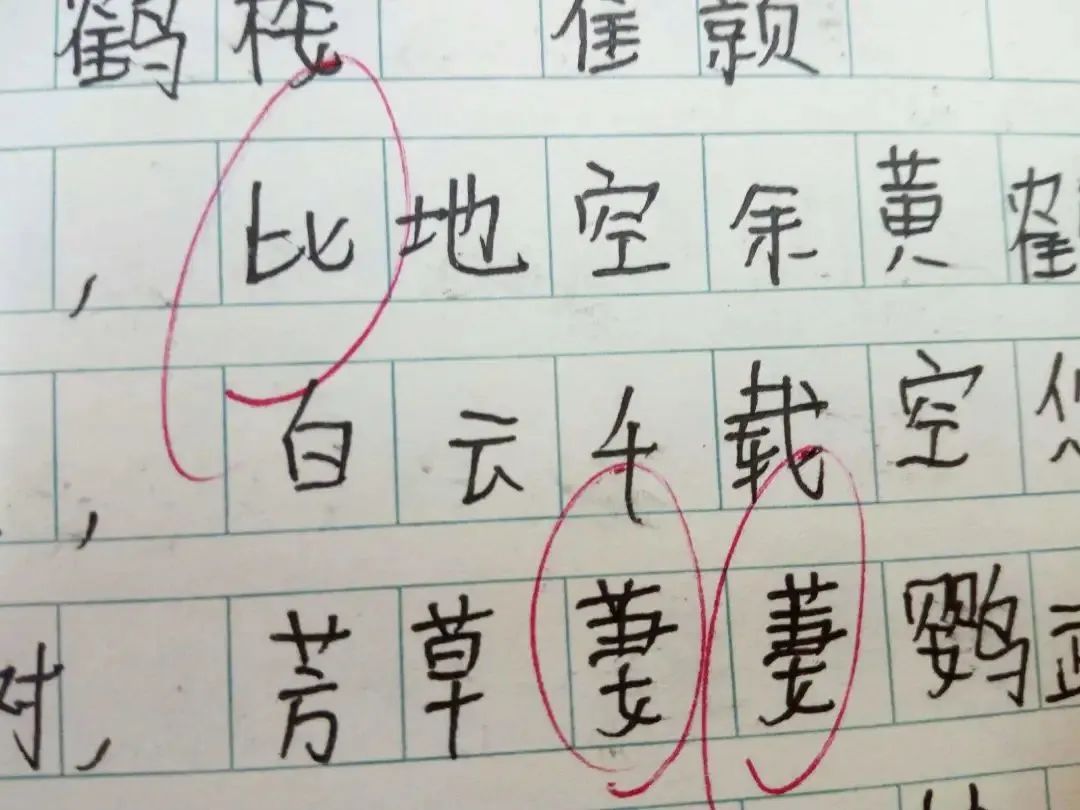 鹤 崔颢
，比地空余黄鹤
，白云千载空悠
，芳草萋萋鹦